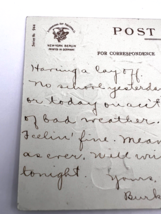 POST
FOR CORRESPONDENCE
Having a lay off.
No school yesterday
or today on acct
of bad weather.
Feelin' fine. Mean
as ever. Will write
tonight
Yours,